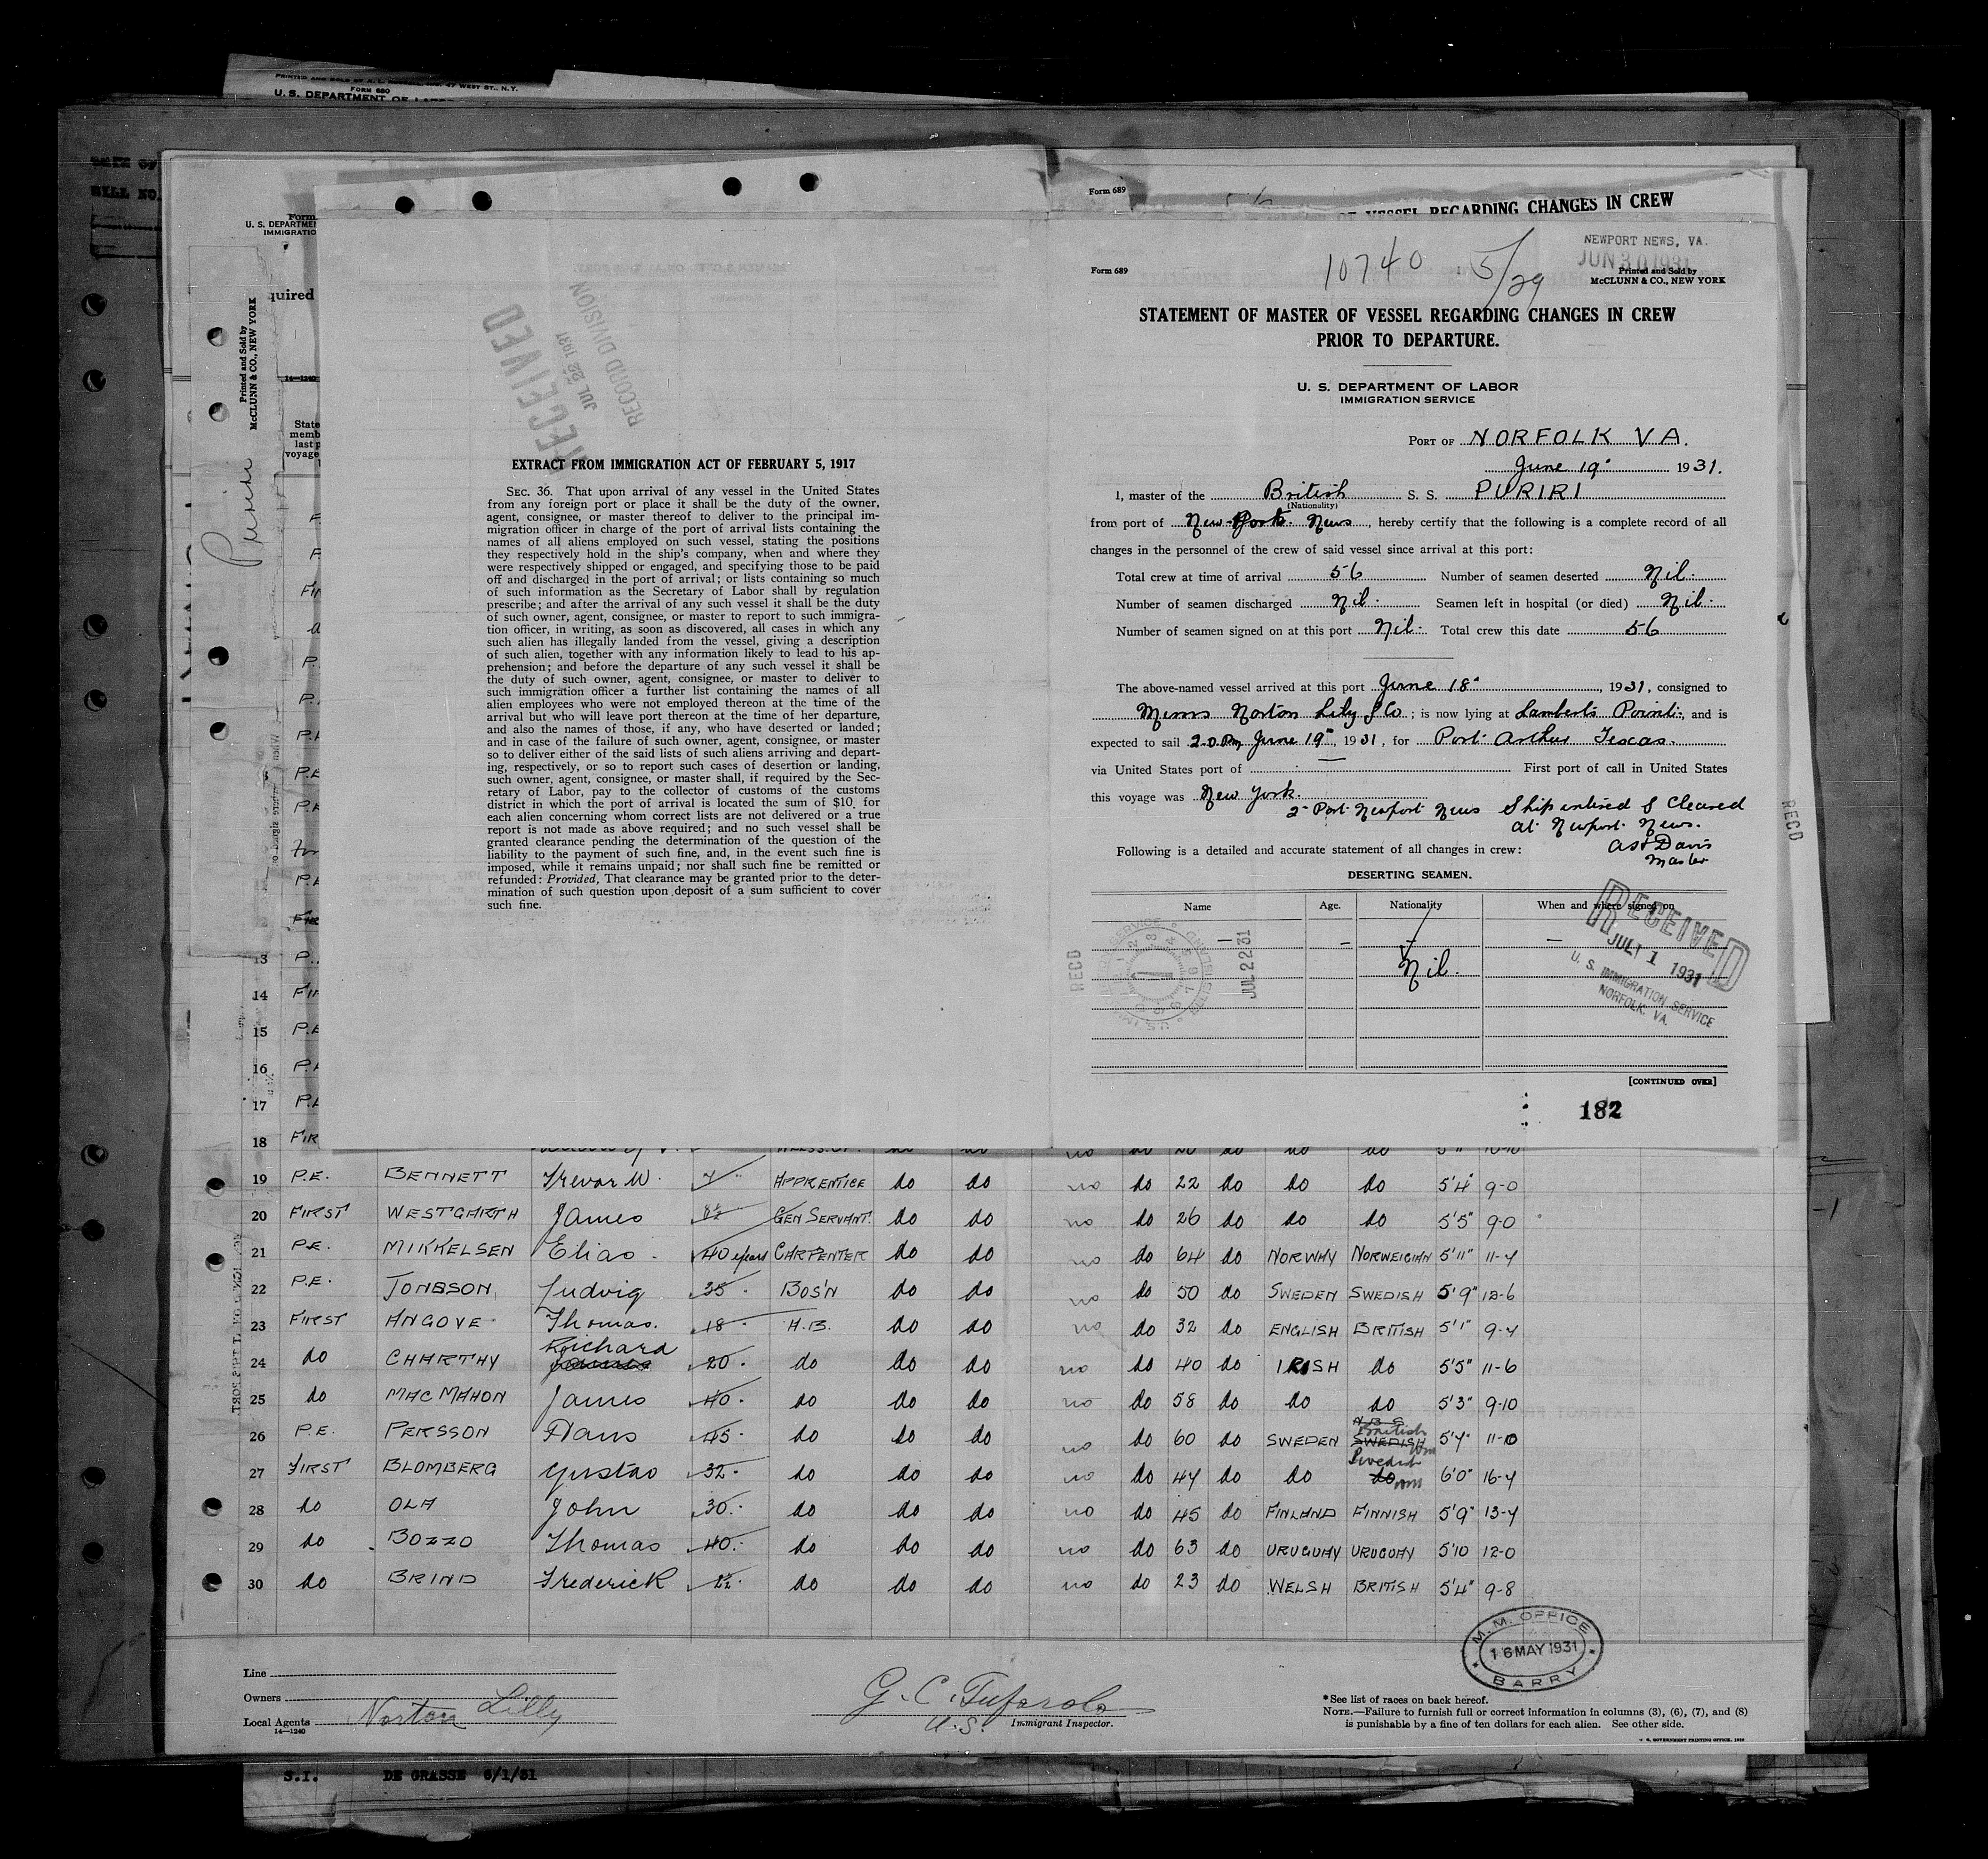 PRINTED AND SOLD BY
47 WEST ST., N.Y.
FORM 680
U. S. DEPARTMENT OF LABOR
DATE OF
BILL NO.
Form
U. S. DEPARTMENT
IMMIGRATION
quired
Printed and Sold by
McCLUNN & CO., NEW YORK
Puriri
14—1240
State
memb
last p
voyage
RECEIVED
JUL 22 1931
RECORD DIVISION
EXTRACT FROM IMMIGRATION ACT OF FEBRUARY 5, 1917
SEC. 36. That upon arrival of any vessel in the United States
from any foreign port or place it shall be the duty of the owner,
agent, consignee, or master thereof to deliver to the principal im-
migration officer in charge of the port of arrival lists containing the
names of all aliens employed on such vessel, stating the positions
they respectively hold in the ship's company, when and where they
were respectively shipped or engaged, and specifying those to be paid
off and discharged in the port of arrival; or lists containing so much
of such information as the Secretary of Labor shall by regulation
prescribe; and after the arrival of any such vessel it shall be the duty
of such owner, agent, consignee, or master to report to such immigra-
tion officer, in writing, as soon as discovered, all cases in which any
such alien has illegally landed from the vessel, giving a description
of such alien, together with any information likely to lead to his ap-
prehension; and before the departure of any such vessel it shall be
the duty of such owner, agent, consignee, or master to deliver to
such immigration officer a further list containing the names of all
alien employees who were not employed thereon at the time of the
arrival but who will leave port thereon at the time of her departure,
and also the names of those, if any, who have deserted or landed;
and in case of the failure of such owner, agent, consignee, or master
so to deliver either of the said lists of such aliens arriving and depart-
ing, respectively, or so to report such cases of desertion or landing,
such owner, agent, consignee, or master shall, if required by the Sec-
retary of Labor, pay to the collector of customs of the customs
district in which the port of arrival is located the sum of $10 for
each alien concerning whom correct lists are not delivered or a true
report is not made as above required; and no such vessel shall be
granted clearance pending the determination of the question of the
liability to the payment of such fine, and, in the event such fine is
imposed, while it remains unpaid; nor shall such fine be remitted or
refunded: Provided, That clearance may be granted prior to the deter-
mination of such question upon deposit of a sum sufficient to cover
such fine.
Form 689
OF VESSEL REGARDING CHANGES IN CREW
10740 5/29
NEWPORT NEWS, VA.
JUN 30 1931
Form 689
Printed and Sold by
McCLUNN & CO., NEW YORK
STATEMENT OF MASTER OF VESSEL REGARDING CHANGES IN CREW
PRIOR TO DEPARTURE.
U. S. DEPARTMENT OF LABOR
IMMIGRATION SERVICE
PORT OF NORFOLK VA.
June 19" 1931.
I, master of the British S. S. PURIRI
(Nationality)
from port of New Port News, hereby certify that the following is a complete record of all
changes in the personnel of the crew of said vessel since arrival at this port:
Total crew at time of arrival 56 Number of seamen deserted Nil.
Number of seamen discharged Nil. Seamen left in hospital (or died) Nil.
Number of seamen signed on at this port Nil. Total crew this date 56
The above-named vessel arrived at this port June 18" , 1931, consigned to
Norton Lily & Co ; is now lying at Lamberts Point , and is
expected to sail 2.0.Pm June 19", 1931, for Port Arthur Texas.
via United States port of — First port of call in United States
this voyage was New York.
2" Port Newport News Ship entered & Cleared
at Newport News.
Davis
Master
Following is a detailed and accurate statement of all changes in crew:
DESERTING SEAMEN.
Name Age. Nationality When and where signed on
— — — —
Nil.
RECD
JUL 22 31
RECEIVED
JUL 1 1931
U. S. IMMIGRATION SERVICE
NORFOLK, VA.
RECD
[CONTINUED OVER]
182
13 P.
14 FIR
15 P.E
16 P.
17 P.E
18 FIR
19 P.E. BENNETT Trevor W. APPRENTICE do do no do 22 do do do 5'4" 9-0
20 FIRST WESTGARTH James GEN SERVANT. do do no do 26 do do do 5'5" 9-0
21 P.E. MIKKELSEN Elias 40 years CARPENTER do do no do 64 do NORWAY NORWEIGIAN 5'11" 11-4
22 P.E. JONBSON Ludvig 35 BOS'N do do no do 50 do SWEDEN SWEDISH 5'9" 12-6
23 FIRST ANGOVE Thomas. 18 A.B. do do no do 32 do ENGLISH BRITISH 5'1" 9-4
24 do CHARTHY Richard 20 do do do no do 40 do IRISH do 5'5" 11-6
25 do MACMAHON James 40 do do do no do 58 do do do 5'3" 9-10
26 P.E. PERSSON Hans 45 do do do no do 60 do SWEDEN SWEDISH British 5'4" 11-10
27 FIRST BLOMBERG Gustav 32 do do do no do 44 do do do Swedish 6'0" 16-4
28 do OLA John 30 do do do no do 45 do FINLAND FINNISH 5'9" 13-4
29 do BOZZO Thomas 40 do do do no do 63 do URUGUAY URUGUAY 5'10 12-0
30 do BRIND Frederick 22 do do do no do 23 do WELSH BRITISH 5'4" 9-8
M. M. OFFICE
16 MAY 1931
BARRY
Line
Owners
Local Agents Norton Lilly
14—1240
U.S. Immigrant Inspector.
*See list of races on back hereof.
NOTE.—Failure to furnish full or correct information in columns (3), (6), (7), and (8)
is punishable by a fine of ten dollars for each alien. See other side.
U. S. GOVERNMENT PRINTING OFFICE
S.I. DE GRASSE 6/1/31